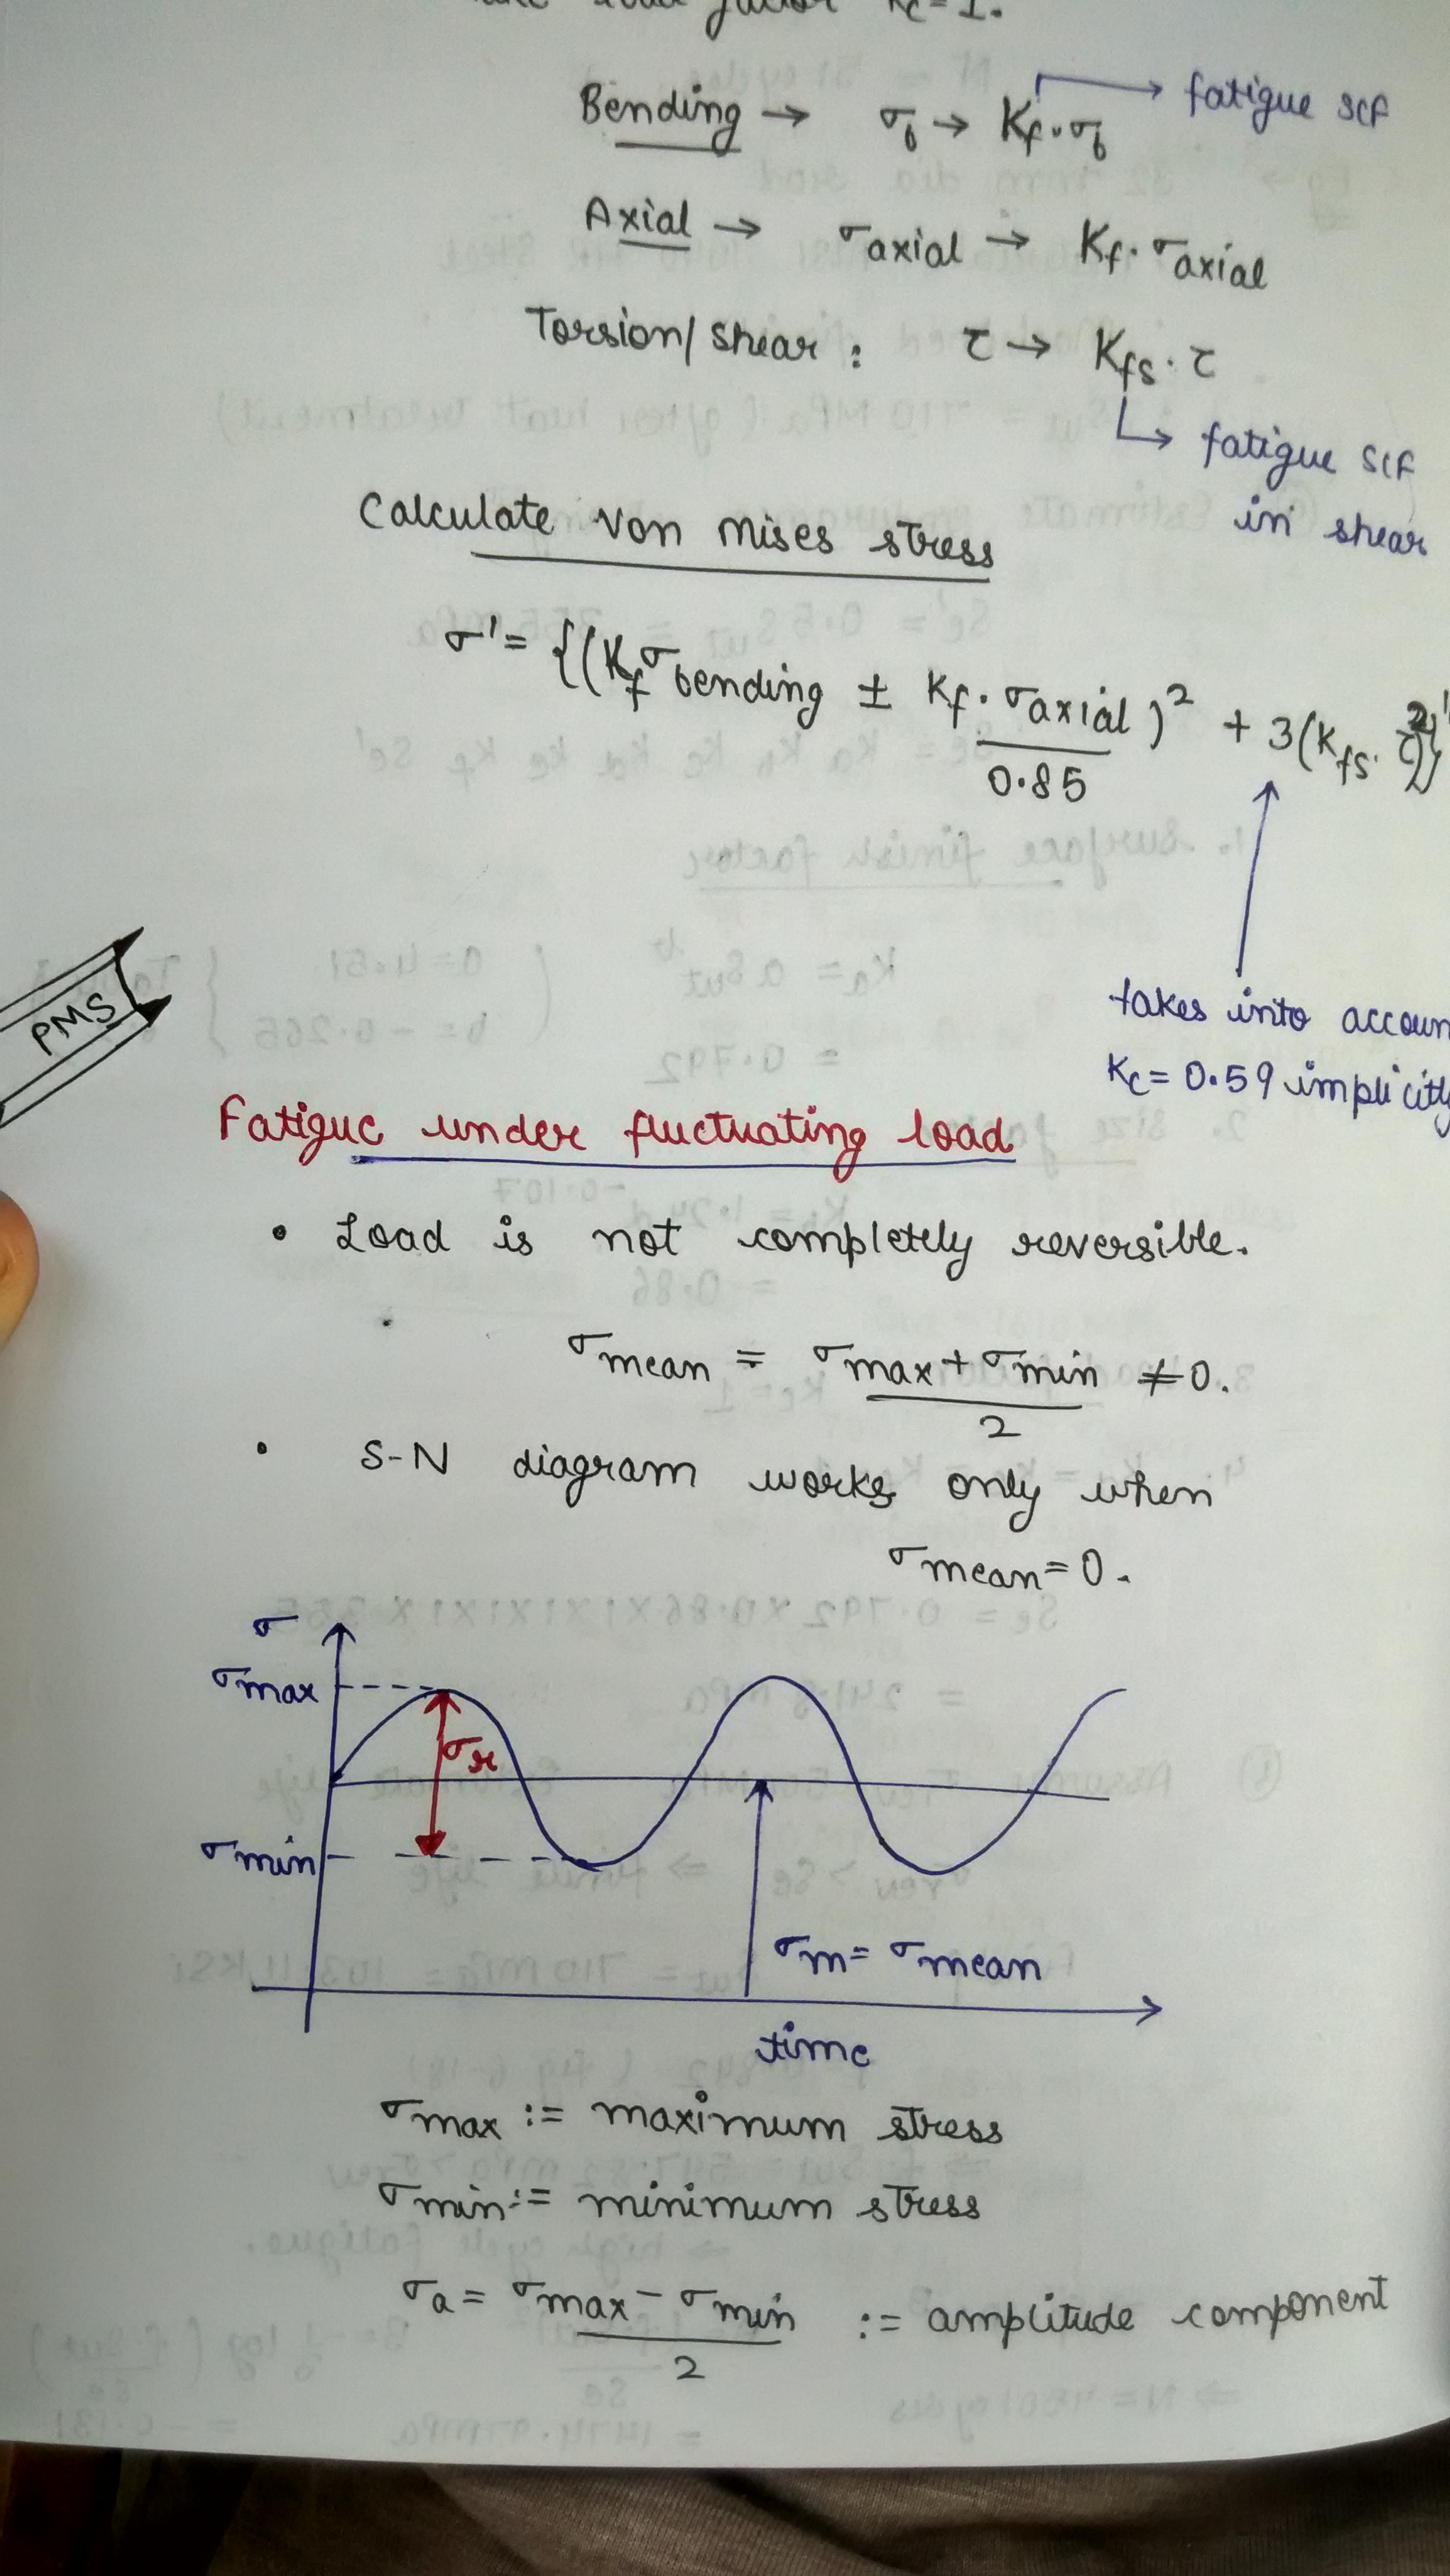 load factor Kc = 1.
Bending → σb → Kf·σb → fatigue SCF
Axial → σaxial → Kf·σaxial
Torsion/shear : τ → Kfs·τ
↳ fatigue SCF
in shear
Calculate von mises stress
σ' = {(Kf σbending ± Kf·σaxial/0.85)² + 3(Kfs·τ)²}
takes into
Kc = 0.59 implicitly
PMS
Fatigue under fluctuating load
• Load is not completely reversible.
σmean = σmax + σmin / 2 ≠ 0.
• S-N diagram works only when
σmean = 0.
σ
σmax
σr
σmin
σm = σmean
time
σmax := maximum stress
σmin := minimum stress
σa = σmax - σmin / 2 := amplitude component